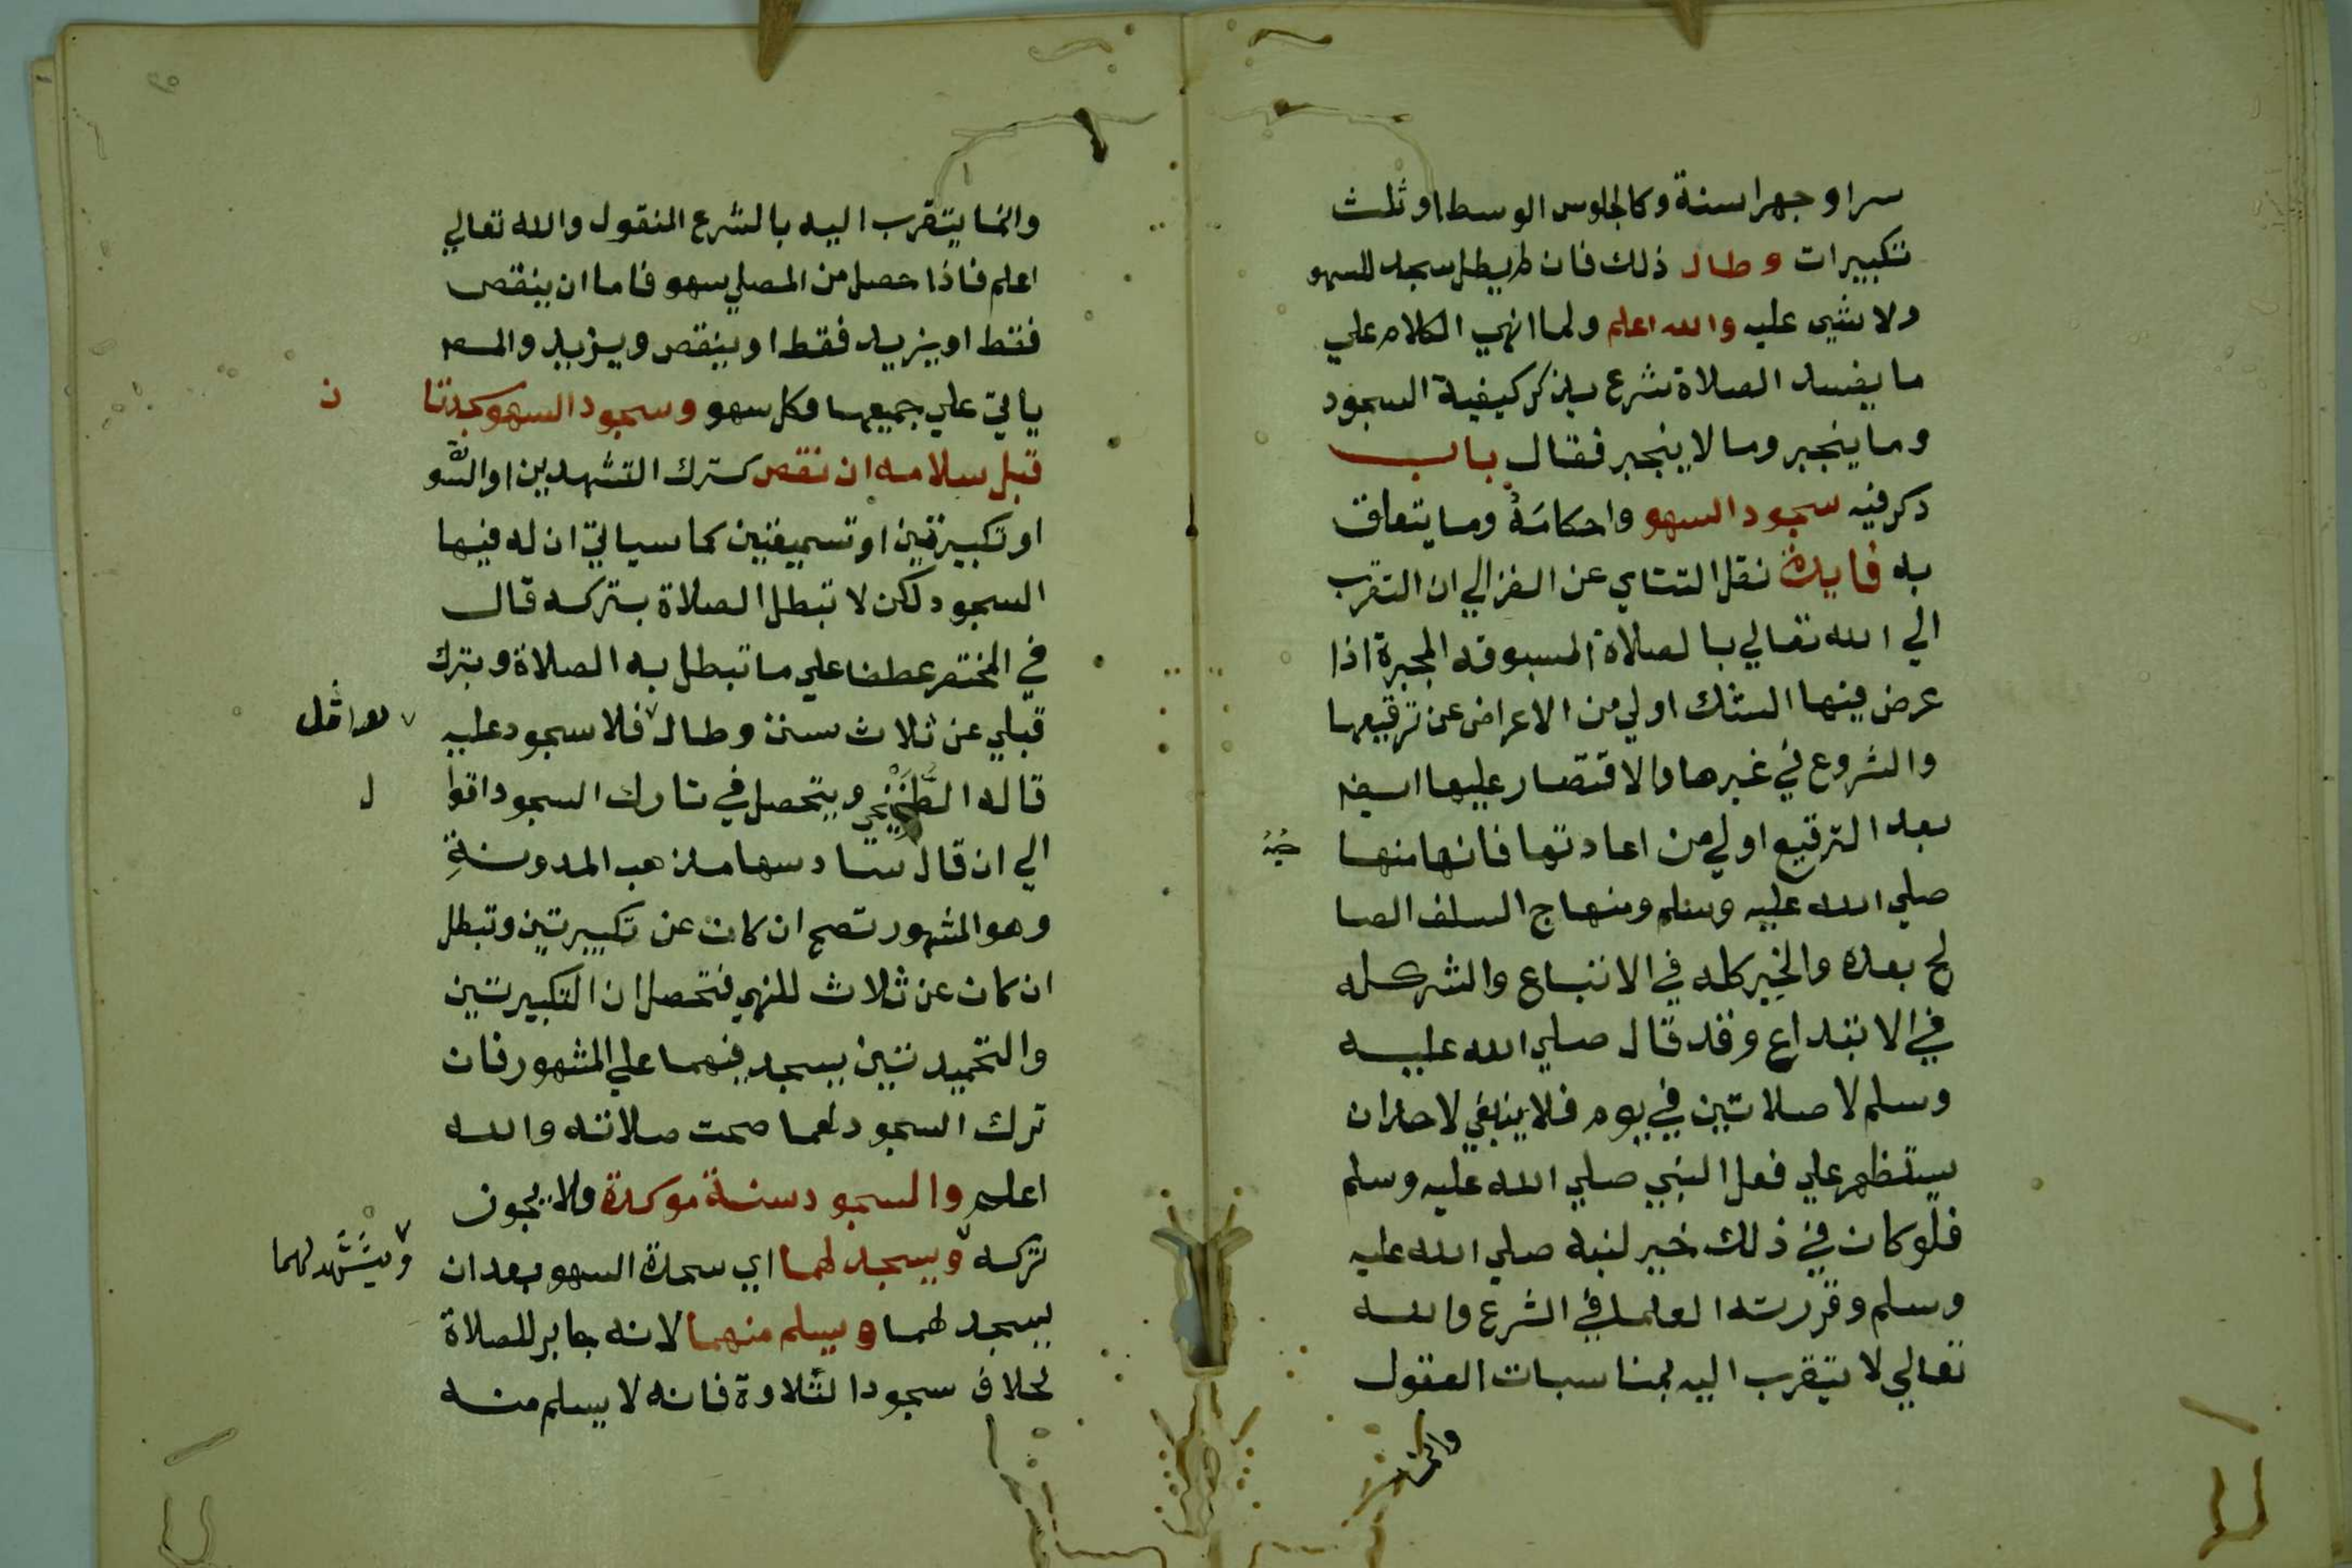 سرا او جهرا سنة وكالجلوس الوسط او ثلث
تكبيرات وطال ذلك فان لم يطل سجد للسهو
ولا شي عليه والله اعلم ولما انهي الكلام علي
ما يفسد الصلاة شرع يذكر كيفية السجود
وما ينجبر وما لا ينجبر فقال باب
ذكر فيه سجود السهو واحكامه وما يتعلق
به فايدة نقل التتاي عن الغزالي ان التقرب
الي الله تعالي بالصلاة المسبوقه المجبرة اذا
عرض فيها الشك اولي من الاعراض عن ترقيعها
والشروع في غيرها والاقتصار عليها ايضا
بعد الترقيع اولي من اعادتها فانها منها
صلي الله عليه وسلم ومنهاج السلف الصا
لح بعده والخير كله في الاتباع والشر كله
في الابتداع وقد قال صلي الله عليه
وسلم لا صلاتين في يوم فلا ينبغي لاحد ان
يستظهر علي فعل النبي صلي الله عليه وسلم
فلو كان في ذلك خير لنبه صلي الله عليه
وسلم وقررته العلما في الشرع والله
تعالي لا يتقرب اليه بمناسبات العقول
وانما
وانما يتقرب اليه بالشرع المنقول والله تعالي
اعلم فاذا حصل من المصلي سهو فاما ان ينقص
فقط او يزيد فقط او ينقص ويزيد والمص
ياتي علي جميعها وكل سهو وسجود السهو سجدتا
ن
قبل سلامه ان نقص كترك التشهدين او السو
او تكبيرتين او تسميعتين كما سياتي ان له فيها
السجود لكن لا تبطل الصلاة بتركه قال
في المختصر عطفا علي ما تبطل به الصلاة وبترك
قبلي عن ثلاث سنن وطال فلا سجود عليه
قاله الطخيخي ويتحصل في تارك السجود اقوا
ل
الي ان قال سادسها مذهب المدونة
وهو المشهور تصح ان كان عن تكبيرتين وتبطل
ان كان عن ثلاث للنهي فتحصل ان التكبيرتين
والتحميدتين يسجد فيهما علي المشهور فان
ترك السجود لهما صحت صلاته والله
اعلم والسجود سنة موكدة ولا يجوز
تركه ويسجد لهما اي سجدة السهو بعد ان
ويتشهد لهما
يسجد لهما ويسلم منهما لانه جابر للصلاة
بخلاف سجود التلاوة فانه لا يسلم منه